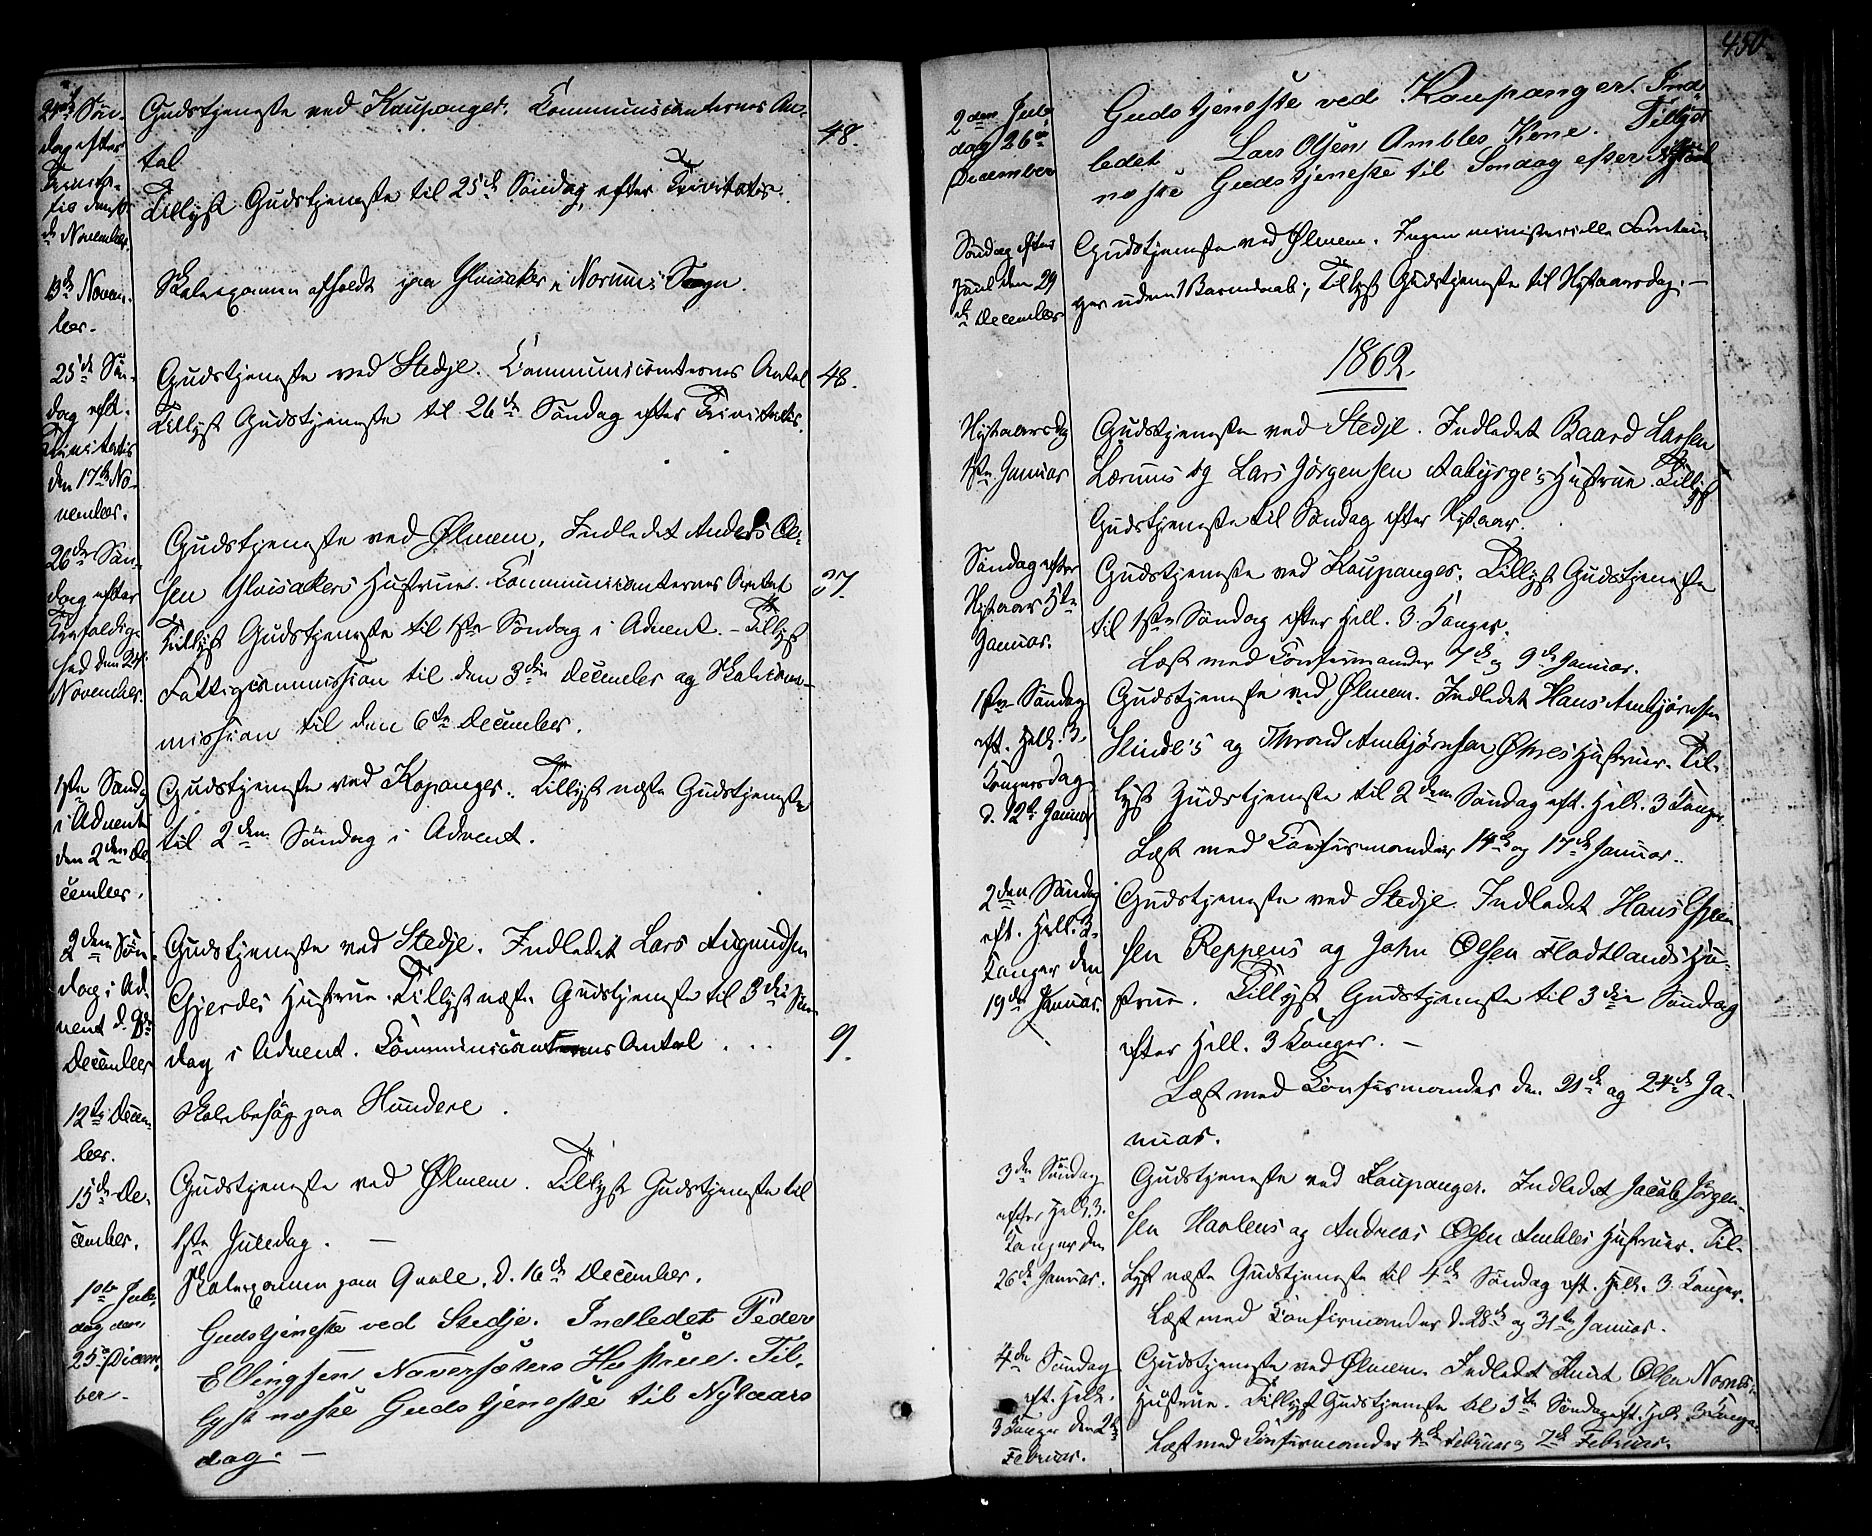 24de Søn-
dag efter
Trinita-
tis den
de November.
Gudstjeneste ved Kaupanger. Communicanternes An-
tal
48.
Tillyst Gudstjeneste til 25de Søndag efter Trinitatis.
13de Novem-
ber.
Skoleexamen afholdt paa i Norums Sogn.
25de Søn-
dag eft.
Trinitatis
den 17de No-
vember.
Gudstjeneste ved Stedje. Communicanternes Antal
48.
Tillyst Gudstjeneste til 26de Søndag efter Trinitatis.
26de Søn-
dag efter
Trefoldig-
hed den 24.
November.
Gudstjeneste ved Ølmem. Indledet Anders Ol-
sen Hustrue. Communicanternes Antal
37.
Tillyst Gudstjeneste til 1ste Søndag i Advent. – Tillyst
Fattigcommission til den 3die December og Skolecom-
mission til den 6te December.
1ste Sønd.
i Advent
den 2den De-
cember.
Gudstjeneste ved Kopanger. Tillyst næste Gudstjeneste
til 2den Søndag i Advent.
2den Søn-
dag i Ad-
vent d. 8de
December
Gudstjeneste ved Stedje. Indledet Lars Amundsen
Gjerdes Hustrue. Tillyst næste Gudstjeneste til 3die Søn-
dag i Advent. Communicanternes Antal . . .
9.
12te Decem-
ber.
Skolebesøg paa Hundere.
15de De-
cember.
Gudstjeneste ved Ølmem. Tillyst Gudstjeneste til
1ste Juledag. –
Skoleexamen paa Qvale. d. 16de December.
1ste Jule-
dag den
25de Decem-
ber.
Gudstjeneste ved Stedje. Indledet Peder
Ellingsen Navarsetens Hustrue. Til-
lyst næste Gudstjeneste til Nytaars
dag. –
450
2den Jule-
dag 26de
December
Gudstjeneste ved Kaupanger. Ind-
ledet Lars Olsen Ambles Kone. Tillyst
næste Gudstjeneste til Søndag efter
Søndag efter
Juul den 29
de December
Gudstjeneste ved Ølmem. Ingen ministerielle Forretnin-
ger uden 1 Barnedaab; Tillyst Gudstjeneste til Nytaarsdag. –
1862.
Nytaarsdag
1ste Januar
Gudstjeneste ved Stedje. Indledet Baard Larsen
Lærums og Lars Jørgensen Aabyrge's Hustrue. Tillyst
Gudstjeneste til Søndag efter Nytaar.
Søndag efter
Nytaar 5te
Januar.
Gudstjeneste ved Kaupanger. Tillyst Gudstjeneste
til 1ste Søndag efter Hell. 3 Konger.
Læst med Confirmander 7de og 9de Januar.
1ste Søndag
eft. Hell. 3
Kongersdag
d. 12te Januar
Gudstjeneste ved Ølmem. Indledet Hans Ambjørnsen
Slinde's og Thrond Ambjørnsen Øvres Hustruer. Til-
lyst Gudstjeneste til 2den Søndag eft. Hell. 3 Konger.
Læst med Confirmander 14de og 17de Januar.
2den Søndag
eft. Hell. 3
Konger den
19de Januar.
Gudstjeneste ved Stedje. Indledet Hans
sen Reppens og John Olsen Flodtlands Hu-
strue. Tillyst Gudstjeneste til 3die Søndag
efter Hell. 3 Konger. –
Læst med Confirmander den 21de og 24de Ja-
nuar.
3die Søndag
efter Hell. 3.
Konger den
26de Januar.
Gudstjeneste ved Kaupanger. Indledet Jacob Jørgen-
sen Haalens og Andreas Olsen Ambles Hustruer. Til-
lyst næste Gudstjeneste til 4de Søndag eft. Hell. 3 Konger.
Læst med Confirmander d. 28de og 31te Januar.
4de Søndag
eft. Hell.
3 Konger den 2de
Februar.
Gudstjeneste ved Ølmem. Indledet Knut Olsen Nornes's
Hustrue. Tillyst Gudstjeneste til 5te Søndag eft. Hell. 3 Konger.
Læst med Confirmander 4de Februar og 7de Februar.